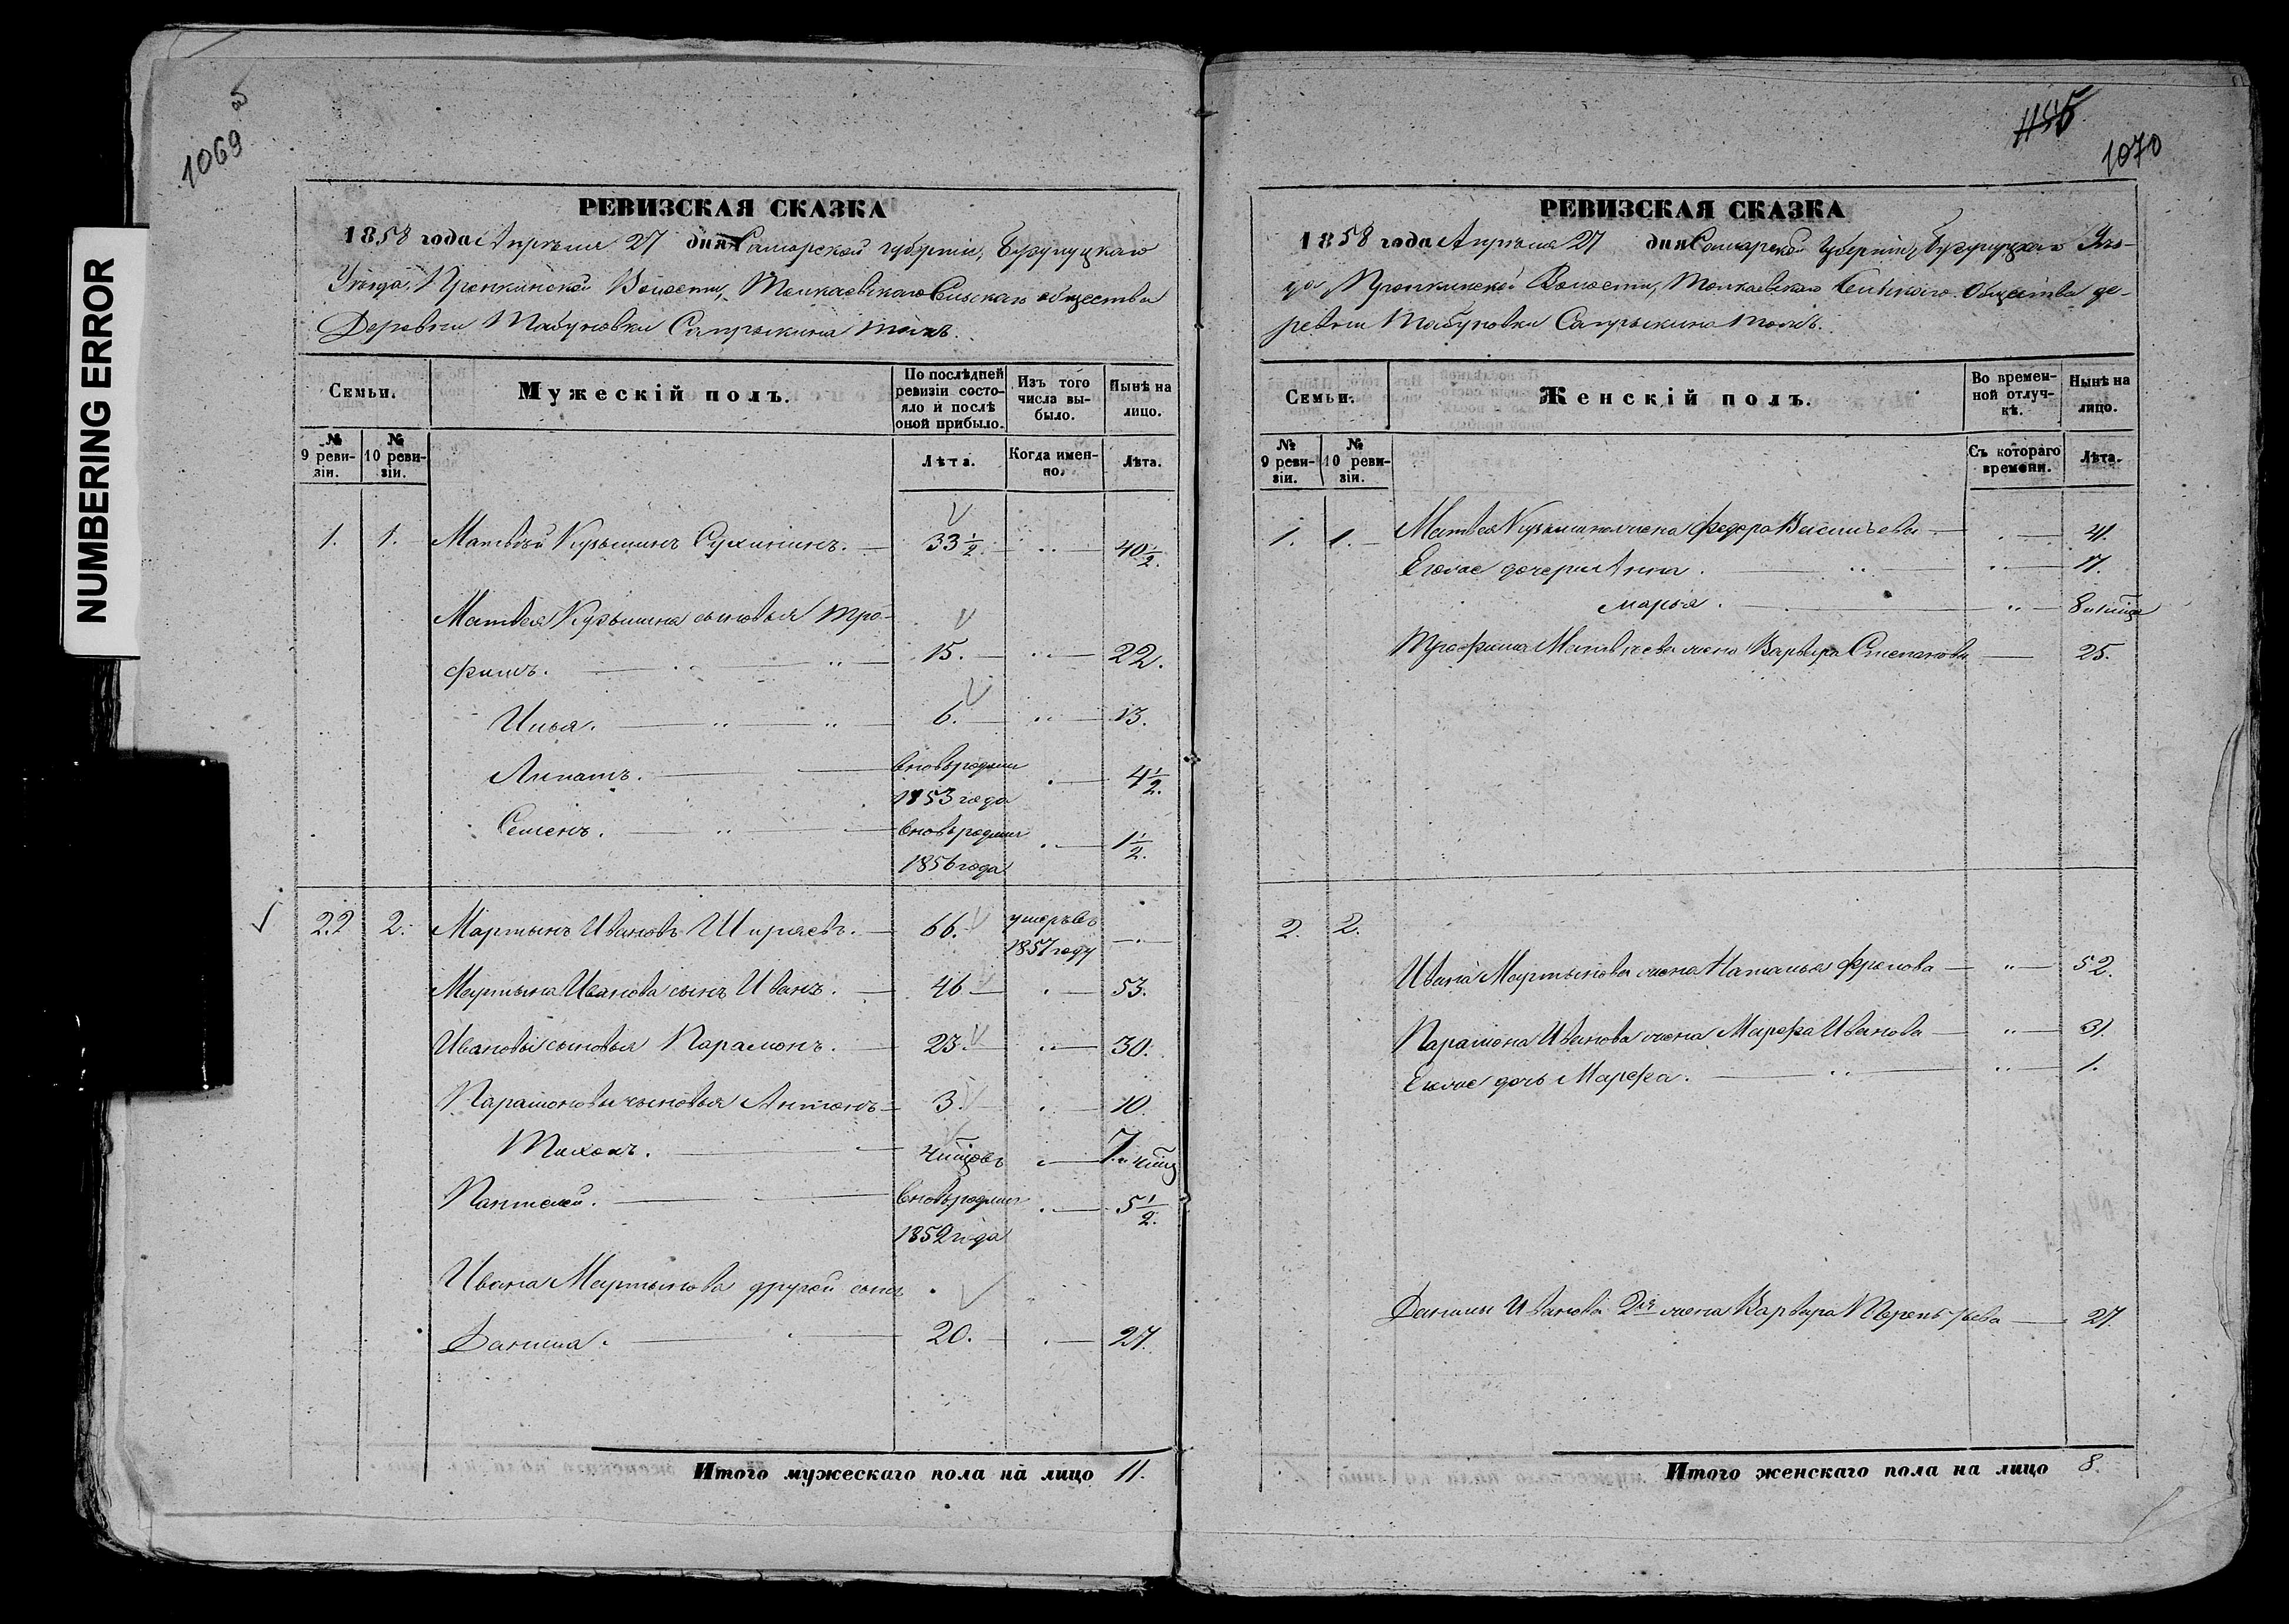 NUMBERING ERROR
5
1069
РЕВИЗСКАЯ СКАЗКА
1858 года Апрѣля 27 дня Самарской губерніи, Бугурусланскаго
Уѣзда, Пронкинской Волости, Толкаевскаго Сельскаго общества
Деревни Табуновки Сапрыкина тожъ.
Семьи.
Мужескій полъ.
По послѣдней ревизіи состояло и послѣ оной прибыло.
Изъ того числа выбыло.
Нынѣ на лицо.
№ 9 ревизіи.
№ 10 ревизіи.
Лѣта.
Когда именно.
Лѣта.
1. 1. Матвѣй Кузьминъ Сухининъ. 33½. 40½.
Матвея Кузьмина сыновья Тро-
фимъ. 15. 22.
Илья. 6. 13.
Липатъ. вновьрожден 4½.
1853 года
Семенъ. вновьрожден 1½.
1856 года
22 2. Мартынъ Ивановъ Ширяевъ. 66. умеръ въ
1857 году
Мартына Иванова сынъ Иванъ. 46 53.
Ивановы сыновья Парамонъ. 23. 30.
Парамоновы сыновья Антонъ 3. 10.
Тихонъ. 4 7. 4
Пантелей. вновьрожден 5½.
1852 года
Ивана Мартынова другой сынъ
Данила. 20. 27.
Итого мужескаго пола на лицо 11.
1070
РЕВИЗСКАЯ СКАЗКА
1858 года Апрѣля 27 дня Самарской Губерніи, Уѣз-
да Пронкинской Волости, Толкаевскаго Сельскаго Общества де-
ревни Табуновки Сапрыкина тожъ.
Семьи.
Женскій полъ.
Во временной отлучкѣ.
Нынѣ на лицо.
№ 9 ревизіи.
№ 10 ревизіи.
Съ котораго времени.
Лѣта.
1. 1. Матвея Кузьмина жена Федора Васильева 41.
Его дочери Анна. 17.
Марья. 8
Трофима Матвѣева жена Варвара Степанова 25.
2. 2.
Ивана Мартынова жена Наталья Фролова 52.
Парамона Иванова жена Марфа Иванова 31.
дочь Марфа. 1.
Данилы Иванова 2я жена Варвара Терентьева 27.
Итого женскаго пола на лицо 8.